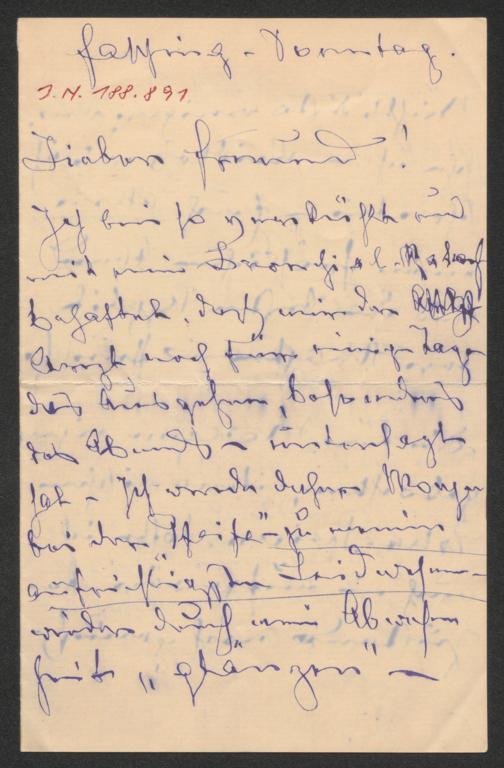 Fasching-Sonntag.
J.N. 188.891
Lieber Freund!
Ich bin so verkühlt und
mit einem Bronchial-Katarrh
behaftet, daß mir der
Arzt noch für einige Tage
das Ausgehen, besonders
des Abends – untersagt
hat – Ich werde daher Morgen
bei der "Pfeife" – zu meinem
aufrichtigsten Leidwesen –
wieder durch meine Abwesen
heit "glänzen" –